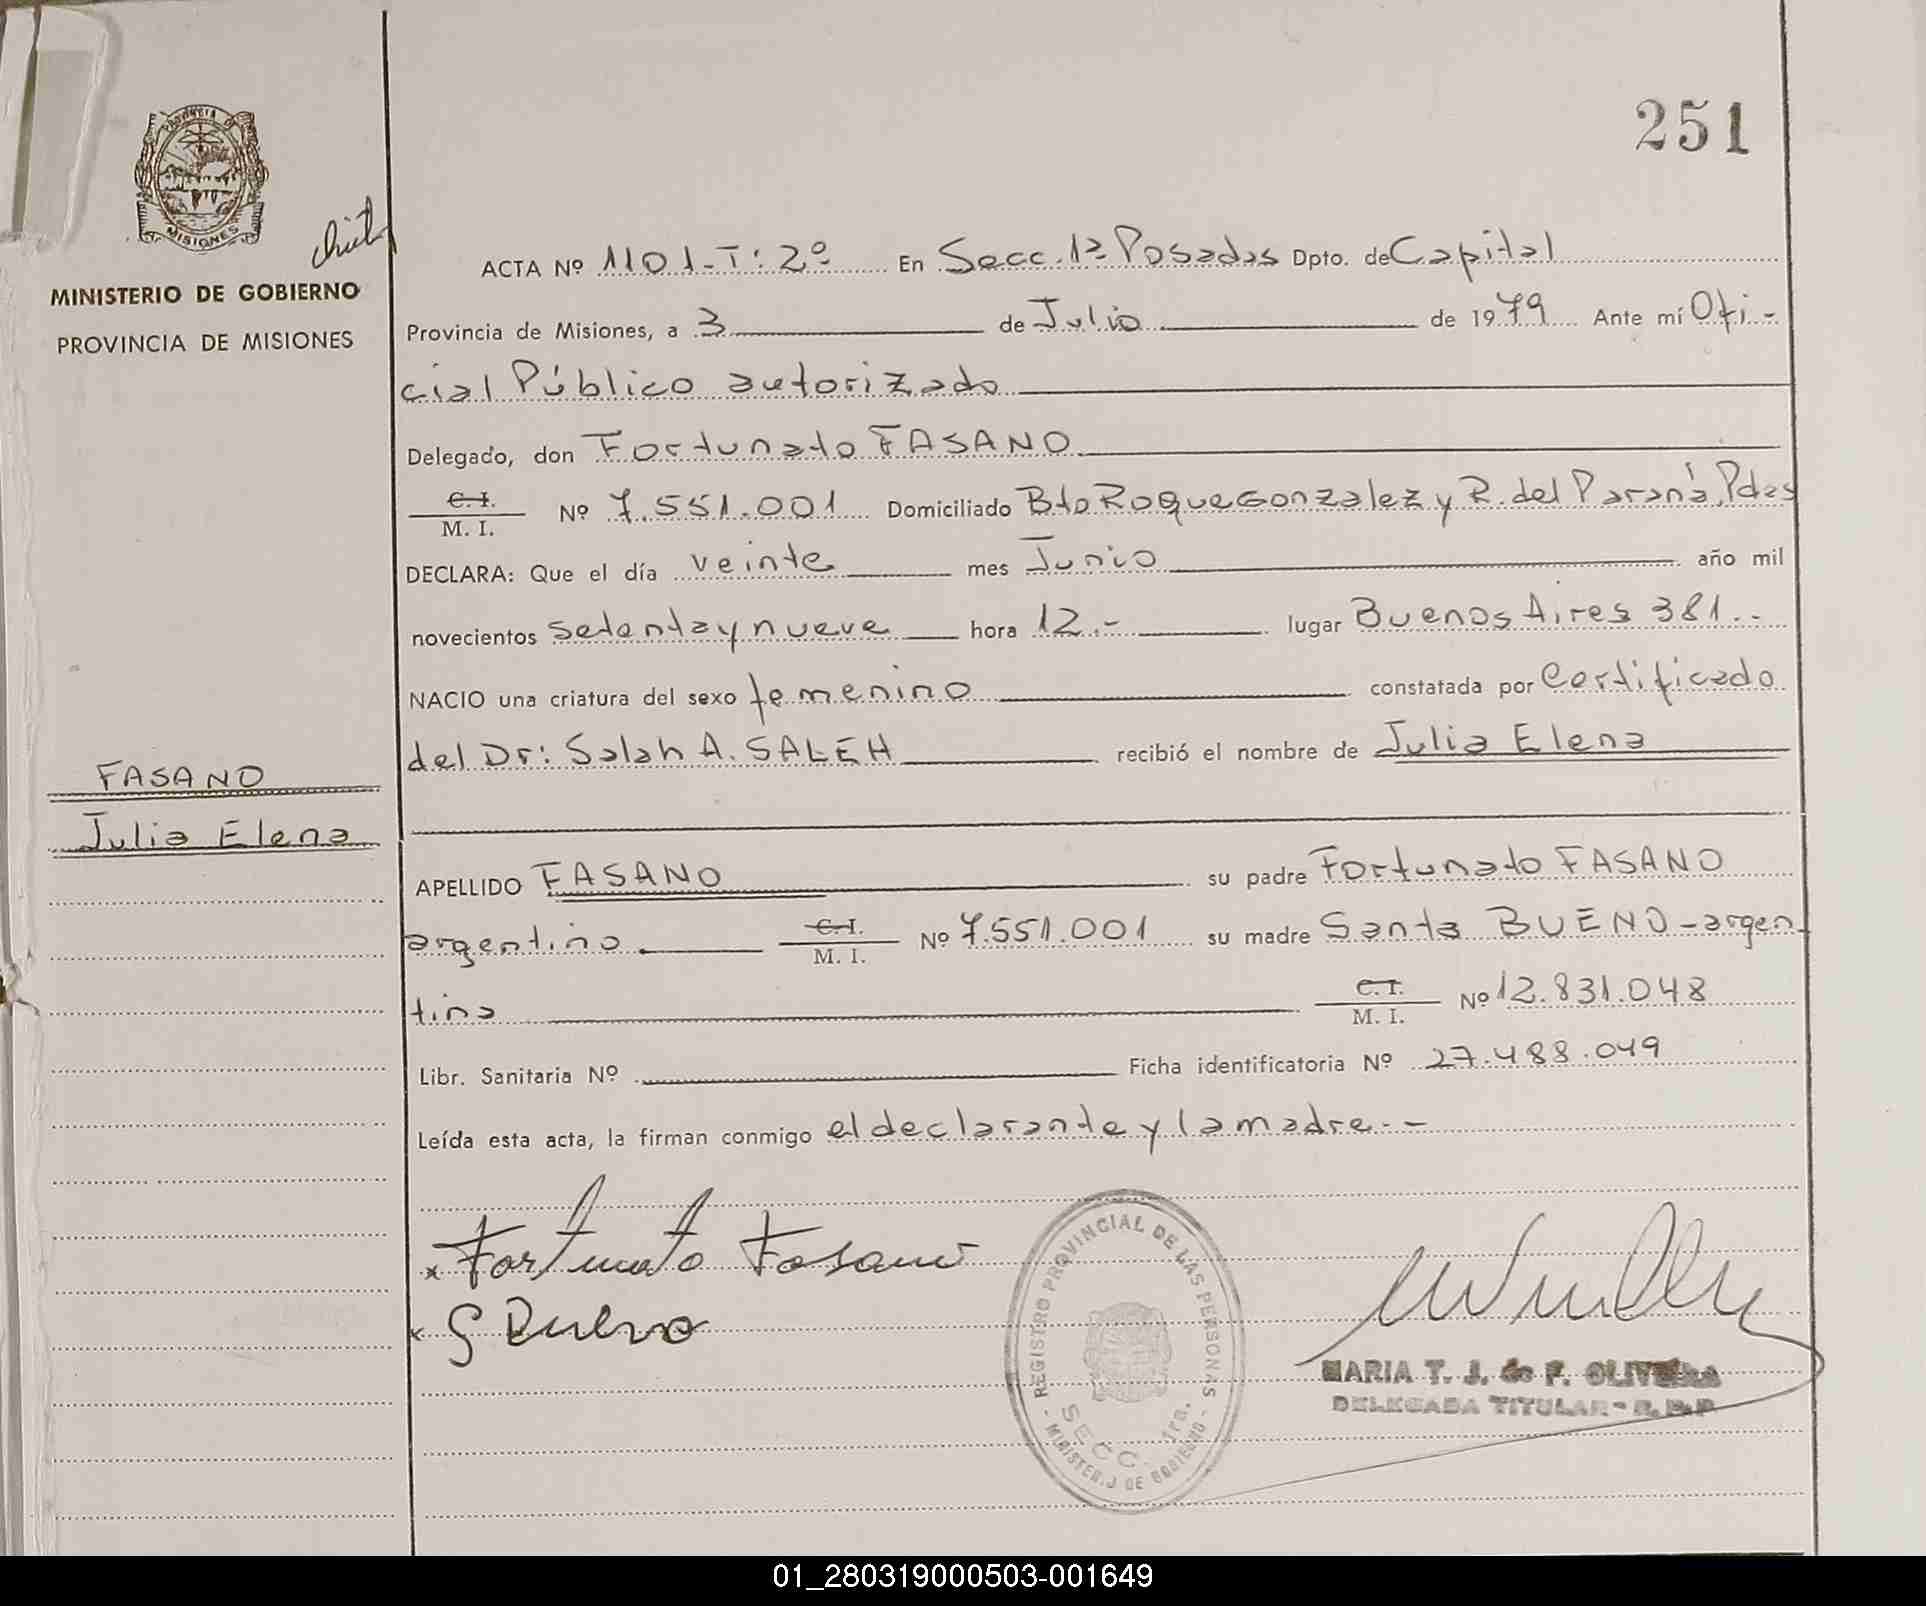 251
PROVINCIA DE
MISIONES
MINISTERIO DE GOBIERNO
PROVINCIA DE MISIONES
FASANO
Julia Elena
ACTA Nº 1101-T:2º En Secc.1ª Posadas Dpto. de Capital
Provincia de Misiones, a 3 de Julio de 1979 Ante mí Ofi-
cial Público autorizado
Delegado, don Fortunato FASANO
C. I.
M. I. Nº 7.551.001 Domiciliado Bto Roque Gonzalez y R. del Paraná, Pdas
DECLARA: Que el día veinte mes Junio año mil
novecientos setenta y nueve hora 12.- lugar Buenos Aires 381.-
NACIO una criatura del sexo femenino constatada por Certificado
del Dr: Salah A. SALEH recibió el nombre de Julia Elena
APELLIDO FASANO su padre Fortunato FASANO
argentino C. I. M. I. Nº 7.551.001 su madre Santa BUENO - argen
tina C. I. M. I. Nº 12.831.048
Libr. Sanitaria Nº Ficha identificatoria Nº 27.488.049
Leída esta acta, la firman conmigo el declarante y la madre.-
x Fortunato Fasano
x S Bueno
REGISTRO PROVINCIAL DE LAS PERSONAS
SECC. 1ra.
- MINISTERIO DE GOBIERNO -
MARIA T. J. de F. OLIVEIRA
DELEGADA TITULAR - R. P. P.
01_280319000503-001649